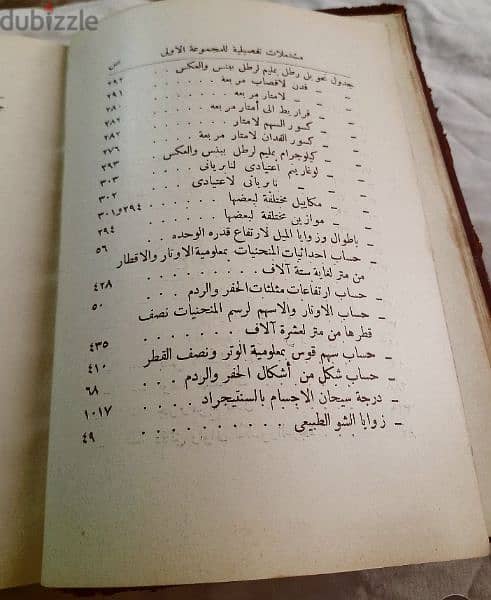 dubizzle
مشتملات تفصيلية للمجموعة الاولى
ص
جدول تحويل رطل بمليم لرطل ببنس والعكس
— — فدن لاقصاب مربعة . . . . ٢٩٢
— — — لامتار مربعه . . . . ٢٩١
— — قراريط الى أمتار مربعه . . . ٢٨٠
— — كسور السهم لامتار . . . . ٢٨٢
— — كسور الفدان لامتار مربعة . . . ٢٨٢
— — كيلوجرام بمليم لرطل ببنس والعكس . . . ٢٧٦
— — لوغاريتم اعتيادى لنابريانى . . . ٢٩٣
— — نابريانى لاعتيادى . . . ٣٠٣
— — مكاييل مختلفة لبعضها . . . ٣٠٢
— — موازين مختلفة لبعضها . . . ٢٩٤و٣٠١
— باطوال وزوايا الميل لارتفاع قدره الوحده . ٢٩٤
— حساب احداثيات المنحنيات بمعلومية الاوتار والاقطار ٥٦
من متر لغاية ستة آلاف . . . .
— حساب ارتفاعات مثلثات الحفر والردم . . . ٤٢٨
— حساب الاوتار والاسهم لرسم المنحنيات نصف ٥٠
قطرها من متر لعشرة آلاف . . .
— حساب سهم قوس بمعلومية الوتر ونصف القطر ٤٣٥
— حساب شكل من أشكال الحفر والردم . . . ٤١٠
— درجة سيحان الاجسام بالسنتيجراد . . . . ٦٨
— زوايا الشو الطبيعى . . . . . . . ١٠١٧
٤٩